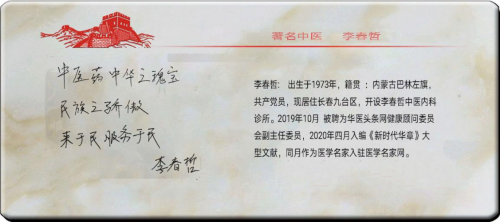 著名中医 李春哲
中医药中华之瑰宝
民族之骄傲
来于民服务于民
李春哲
李春哲： 出生于1973年，籍贯 ：内蒙古巴林左旗，
共产党员，现居住长春九台区，开设李春哲中医内科
诊所。2019年10月 被聘为华医头条网健康顾问委员
会副主任委员，2020年四月入编《新时代华章》大
型文献，同月作为医学名家入驻医学名家网。